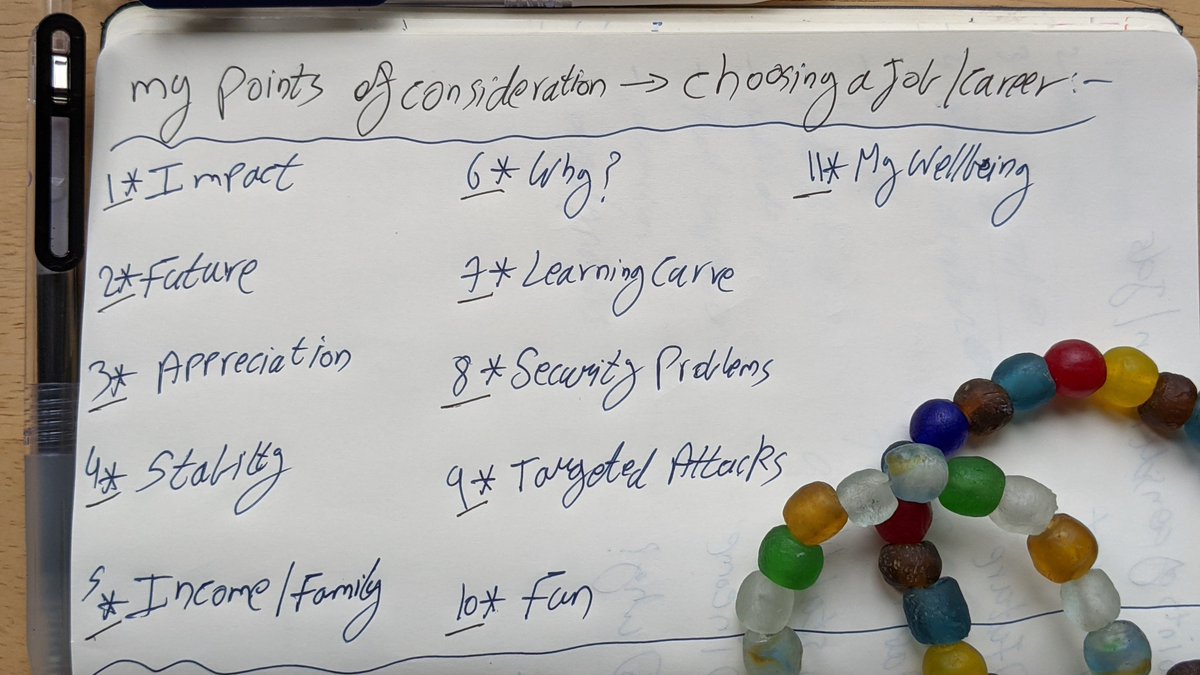 my points of consideration → choosing a job/career:-
1* Impact
2* Future
3* Appreciation
4* Stability
5* Income/Family
6* Why?
7* Learning Curve
8* Security Problems
9* Targeted Attacks
10* Fun
11* My Wellbeing